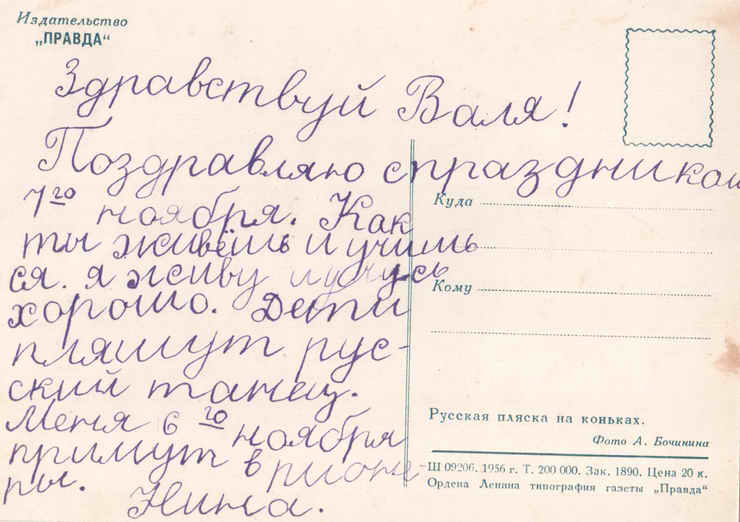 Издательство
„ПРАВДА“
Здравствуй Валя!
Поздравляю с праздником
7го ноября. Как
ты живёшь и учишь
ся. я живу и учусь
хорошо. Дети
пляшут рус-
ский танец.
Меня 6го ноября
примут в пионе
ры. Нина.
Куда
Кому
Русская пляска на коньках.
Фото А. Бочинина
Ш 09206. 1956 г. Т. 200 000. Зак. 1890. Цена 20 к.
Ордена Ленина типография газеты „Правда“